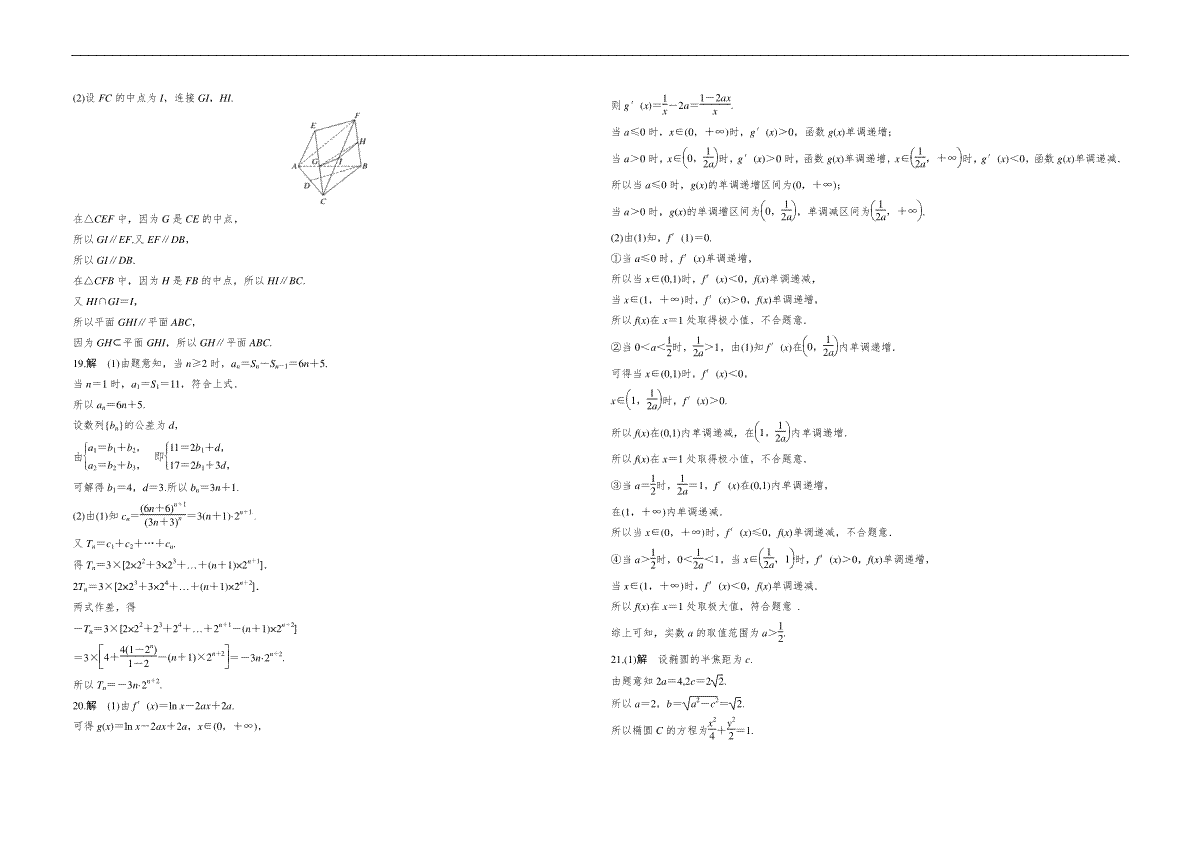 (2)设 FC 的中点为 I，连接 GI，HI.
F
E
H
A
G
I
B
D
C
在△CEF 中，因为 G 是 CE 的中点，
所以 GI∥EF.又 EF∥DB，
所以 GI∥DB.
在△CFB 中，因为 H 是 FB 的中点，所以 HI∥BC.
又 HI∩GI＝I，
所以平面 GHI∥平面 ABC，
因为 GH⊂平面 GHI，所以 GH∥平面 ABC.
19.解 (1)由题意知，当 n≥2 时，aₙ＝Sₙ－Sₙ₋₁＝6n＋5.
当 n＝1 时，a₁＝S₁＝11，符合上式．
所以 aₙ＝6n＋5.
设数列{bₙ}的公差为 d，
由{a₁＝b₁＋b₂，a₂＝b₂＋b₃， 即{11＝2b₁＋d，17＝2b₁＋3d，
可解得 b₁＝4，d＝3.所以 bₙ＝3n＋1.
(2)由(1)知 cₙ＝(6n＋6)ⁿ⁺¹/(3n＋3)ⁿ＝3(n＋1)·2ⁿ⁺¹.
又 Tₙ＝c₁＋c₂＋…＋cₙ.
得 Tₙ＝3×[2×2²＋3×2³＋…＋(n＋1)×2ⁿ⁺¹]，
2Tₙ＝3×[2×2³＋3×2⁴＋…＋(n＋1)×2ⁿ⁺²]．
两式作差，得
－Tₙ＝3×[2×2²＋2³＋2⁴＋…＋2ⁿ⁺¹－(n＋1)×2ⁿ⁺²]
＝3×[4＋4(1－2ⁿ)/(1－2)－(n＋1)×2ⁿ⁺²]＝－3n·2ⁿ⁺².
所以 Tₙ＝－3n·2ⁿ⁺².
20.解 (1)由 f′(x)＝ln x－2ax＋2a.
可得 g(x)＝ln x－2ax＋2a，x∈(0，＋∞)，
则 g′(x)＝1/x－2a＝(1－2ax)/x.
当 a≤0 时，x∈(0，＋∞)时，g′(x)>0，函数 g(x)单调递增；
当 a>0 时，x∈(0，1/2a)时，g′(x)>0 时，函数 g(x)单调递增，x∈(1/2a，＋∞)时，g′(x)<0，函数 g(x)单调递减．
所以当 a≤0 时，g(x)的单调递增区间为(0，＋∞)；
当 a>0 时，g(x)的单调增区间为(0，1/2a)，单调减区间为(1/2a，＋∞).
(2)由(1)知，f′(1)＝0.
①当 a≤0 时，f′(x)单调递增，
所以当 x∈(0,1)时，f′(x)<0，f(x)单调递减，
当 x∈(1，＋∞)时，f′(x)>0，f(x)单调递增，
所以 f(x)在 x＝1 处取得极小值，不合题意．
②当 0<a<1/2时，1/2a>1，由(1)知 f′(x)在(0，1/2a)内单调递增．
可得当 x∈(0,1)时，f′(x)<0，
x∈(1，1/2a)时，f′(x)>0.
所以 f(x)在(0,1)内单调递减，在(1，1/2a)内单调递增．
所以 f(x)在 x＝1 处取得极小值，不合题意．
③当 a＝1/2时，1/2a＝1，f′(x)在(0,1)内单调递增，
在(1，＋∞)内单调递减．
所以当 x∈(0，＋∞)时，f′(x)≤0，f(x)单调递减，不合题意．
④当 a>1/2时，0<1/2a<1，当 x∈(1/2a，1)时，f′(x)>0，f(x)单调递增，
当 x∈(1，＋∞)时，f′(x)<0，f(x)单调递减．
所以 f(x)在 x＝1 处取极大值，符合题意 ．
综上可知，实数 a 的取值范围为 a>1/2.
21.(1)解 设椭圆的半焦距为 c.
由题意知 2a＝4,2c＝2√2.
所以 a＝2，b＝√(a²－c²)＝√2.
所以椭圆 C 的方程为x²/4＋y²/2＝1.